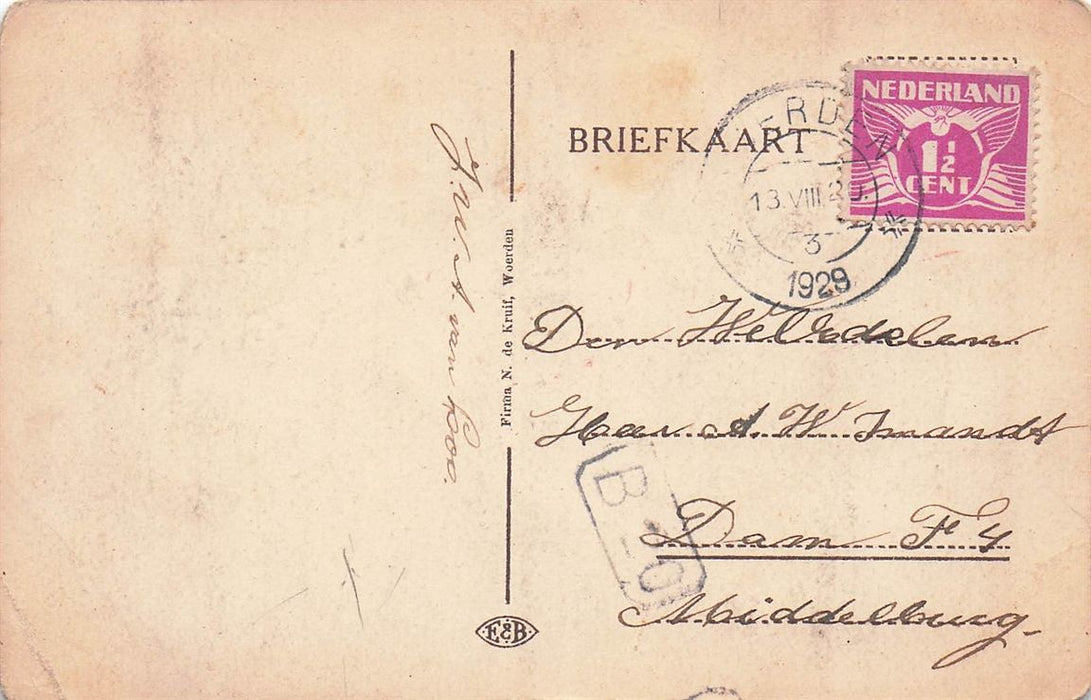 BRIEFKAART
NEDERLAND
1½
CENT
ERDEN
13.VIII.
3
1929
J. W. A. van Loo.
Firma N. de Kruif, Woerden
Den WelEdelen
Heer A. W. Imandt
Dam F 4
Middelburg.
B-20
E&B